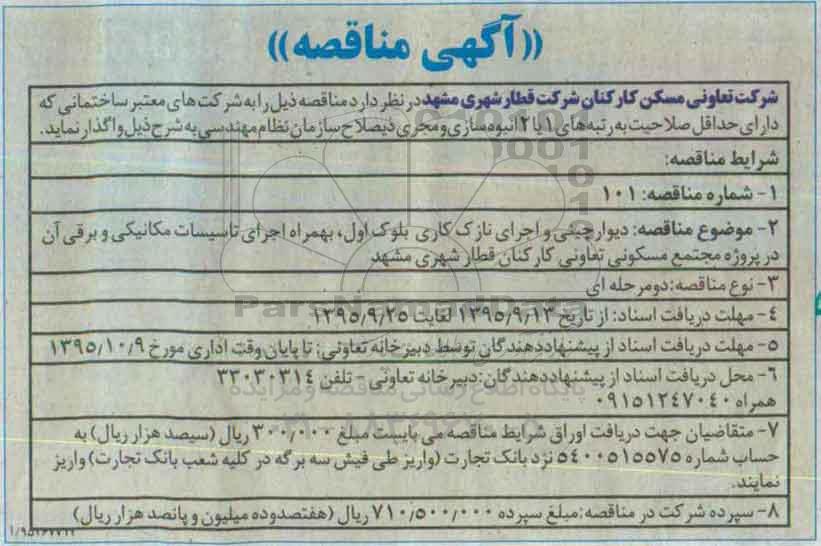 ((آگهی مناقصه))
شرکت تعاونی مسکن کارکنان شرکت قطار شهری مشهد در نظر دارد مناقصه ذیل را به شرکت های معتبر ساختمانی که
دارای حداقل صلاحیت به رتبه های ۱ یا ۲ انبوه سازی و مجری ذیصلاح سازمان نظام مهندسی به شرح ذیل واگذار نماید.
شرایط مناقصه:
۱- شماره مناقصه: ۱۰۱
۲- موضوع مناقصه: دیوارچینی و اجرای نازک کاری بلوک اول، بهمراه اجرای تاسیسات مکانیکی و برقی آن
در پروژه مجتمع مسکونی تعاونی کارکنان قطار شهری مشهد
۳- نوع مناقصه: دو مرحله ای
٤- مهلت دریافت اسناد: از تاریخ ۱۳۹۵/۹/۱۳ لغایت ۱۳۹۵/۹/۲۵
۵- مهلت دریافت اسناد از پیشنهاددهندگان توسط دبیرخانه تعاونی: تا پایان وقت اداری مورخ ۱۳۹۵/۱۰/۹
۶- محل دریافت اسناد از پیشنهاددهندگان: دبیرخانه تعاونی - تلفن ۳۳۰۳۰۳۱٤
همراه ۰۹۱۵۱۲٤۷۰٤۰
۷- متقاضیان جهت دریافت اوراق شرایط مناقصه می بایست مبلغ ۳۰۰/۰۰۰ ریال (سیصد هزار ریال) به
حساب شماره ۵٤۰۰۵۱۵۵۷۵ نزد بانک تجارت (واریز طی فیش سه برگه در کلیه شعب بانک تجارت) واریز
نمایند.
۸- سپرده شرکت در مناقصه: مبلغ سپرده ۷۱۰/۵۰۰/۰۰۰ ریال (هفتصدوده میلیون و پانصد هزار ریال)
ParsNamadData
پایگاه اطلاع رسانی مناقصه و مزایده